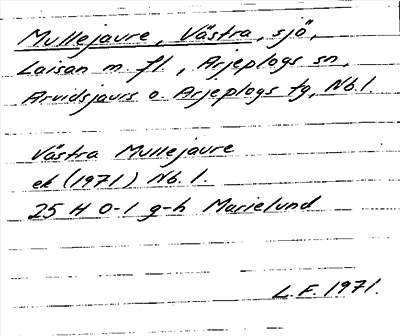 Mullejaure, Västra, sjö,
Laisan m. fl., Arjeplogs sn,
Arvidsjaurs o. Arjeplogs tg, Nb. l.
Västra Mullejaure
ek (1971) Nb. l.
25 H 0-1 g-h Marielund
L. F. 1971.